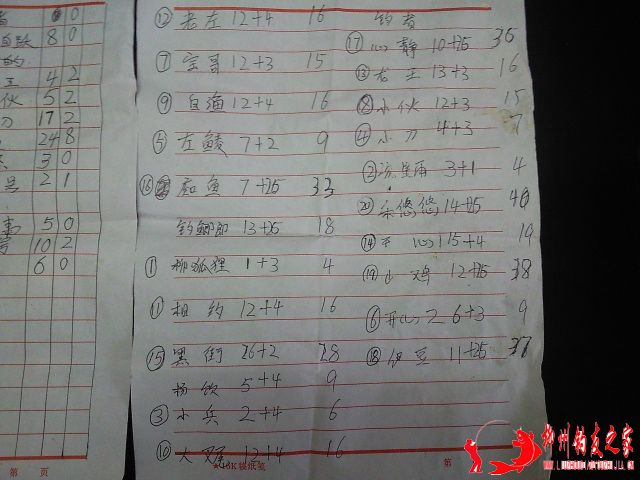 0 0
8 0
的
4 2
伙 5 2
刀 17 2
24 8
3 0
2 1
5 0
10 2
6 0
第 页
⑫ 老左 12+4 16
⑦ 宝哥 12+3 15
⑨ 白海 12+4 16
⑤ 左鲮 7+2 9
⑯ 和鱼 7+25 33
钓鲫郎 13+25 18
① 柳狐狸 1+3 4
⑪ 相约 12+4 16
⑮ 黑街 26+2 28
杨钦 5+4 9
③ 小兵 2+4 6
⑩ 大 12+4 16
钓者
⑰ 心静 10+25 36
⑬ 老土 13+3 16
⑧ 小伙 12+3 15
④ 小刀 4+3 7
② 3+1 4
⑳ 悠悠 14+25 40
⑭ 平心 15+4 19
⑲ 山鸡 12+25 38
⑥ 开心2 6+3 9
⑱ 伊豆 11+25 37
16K 稿纸笔
第
柳州钓友之家